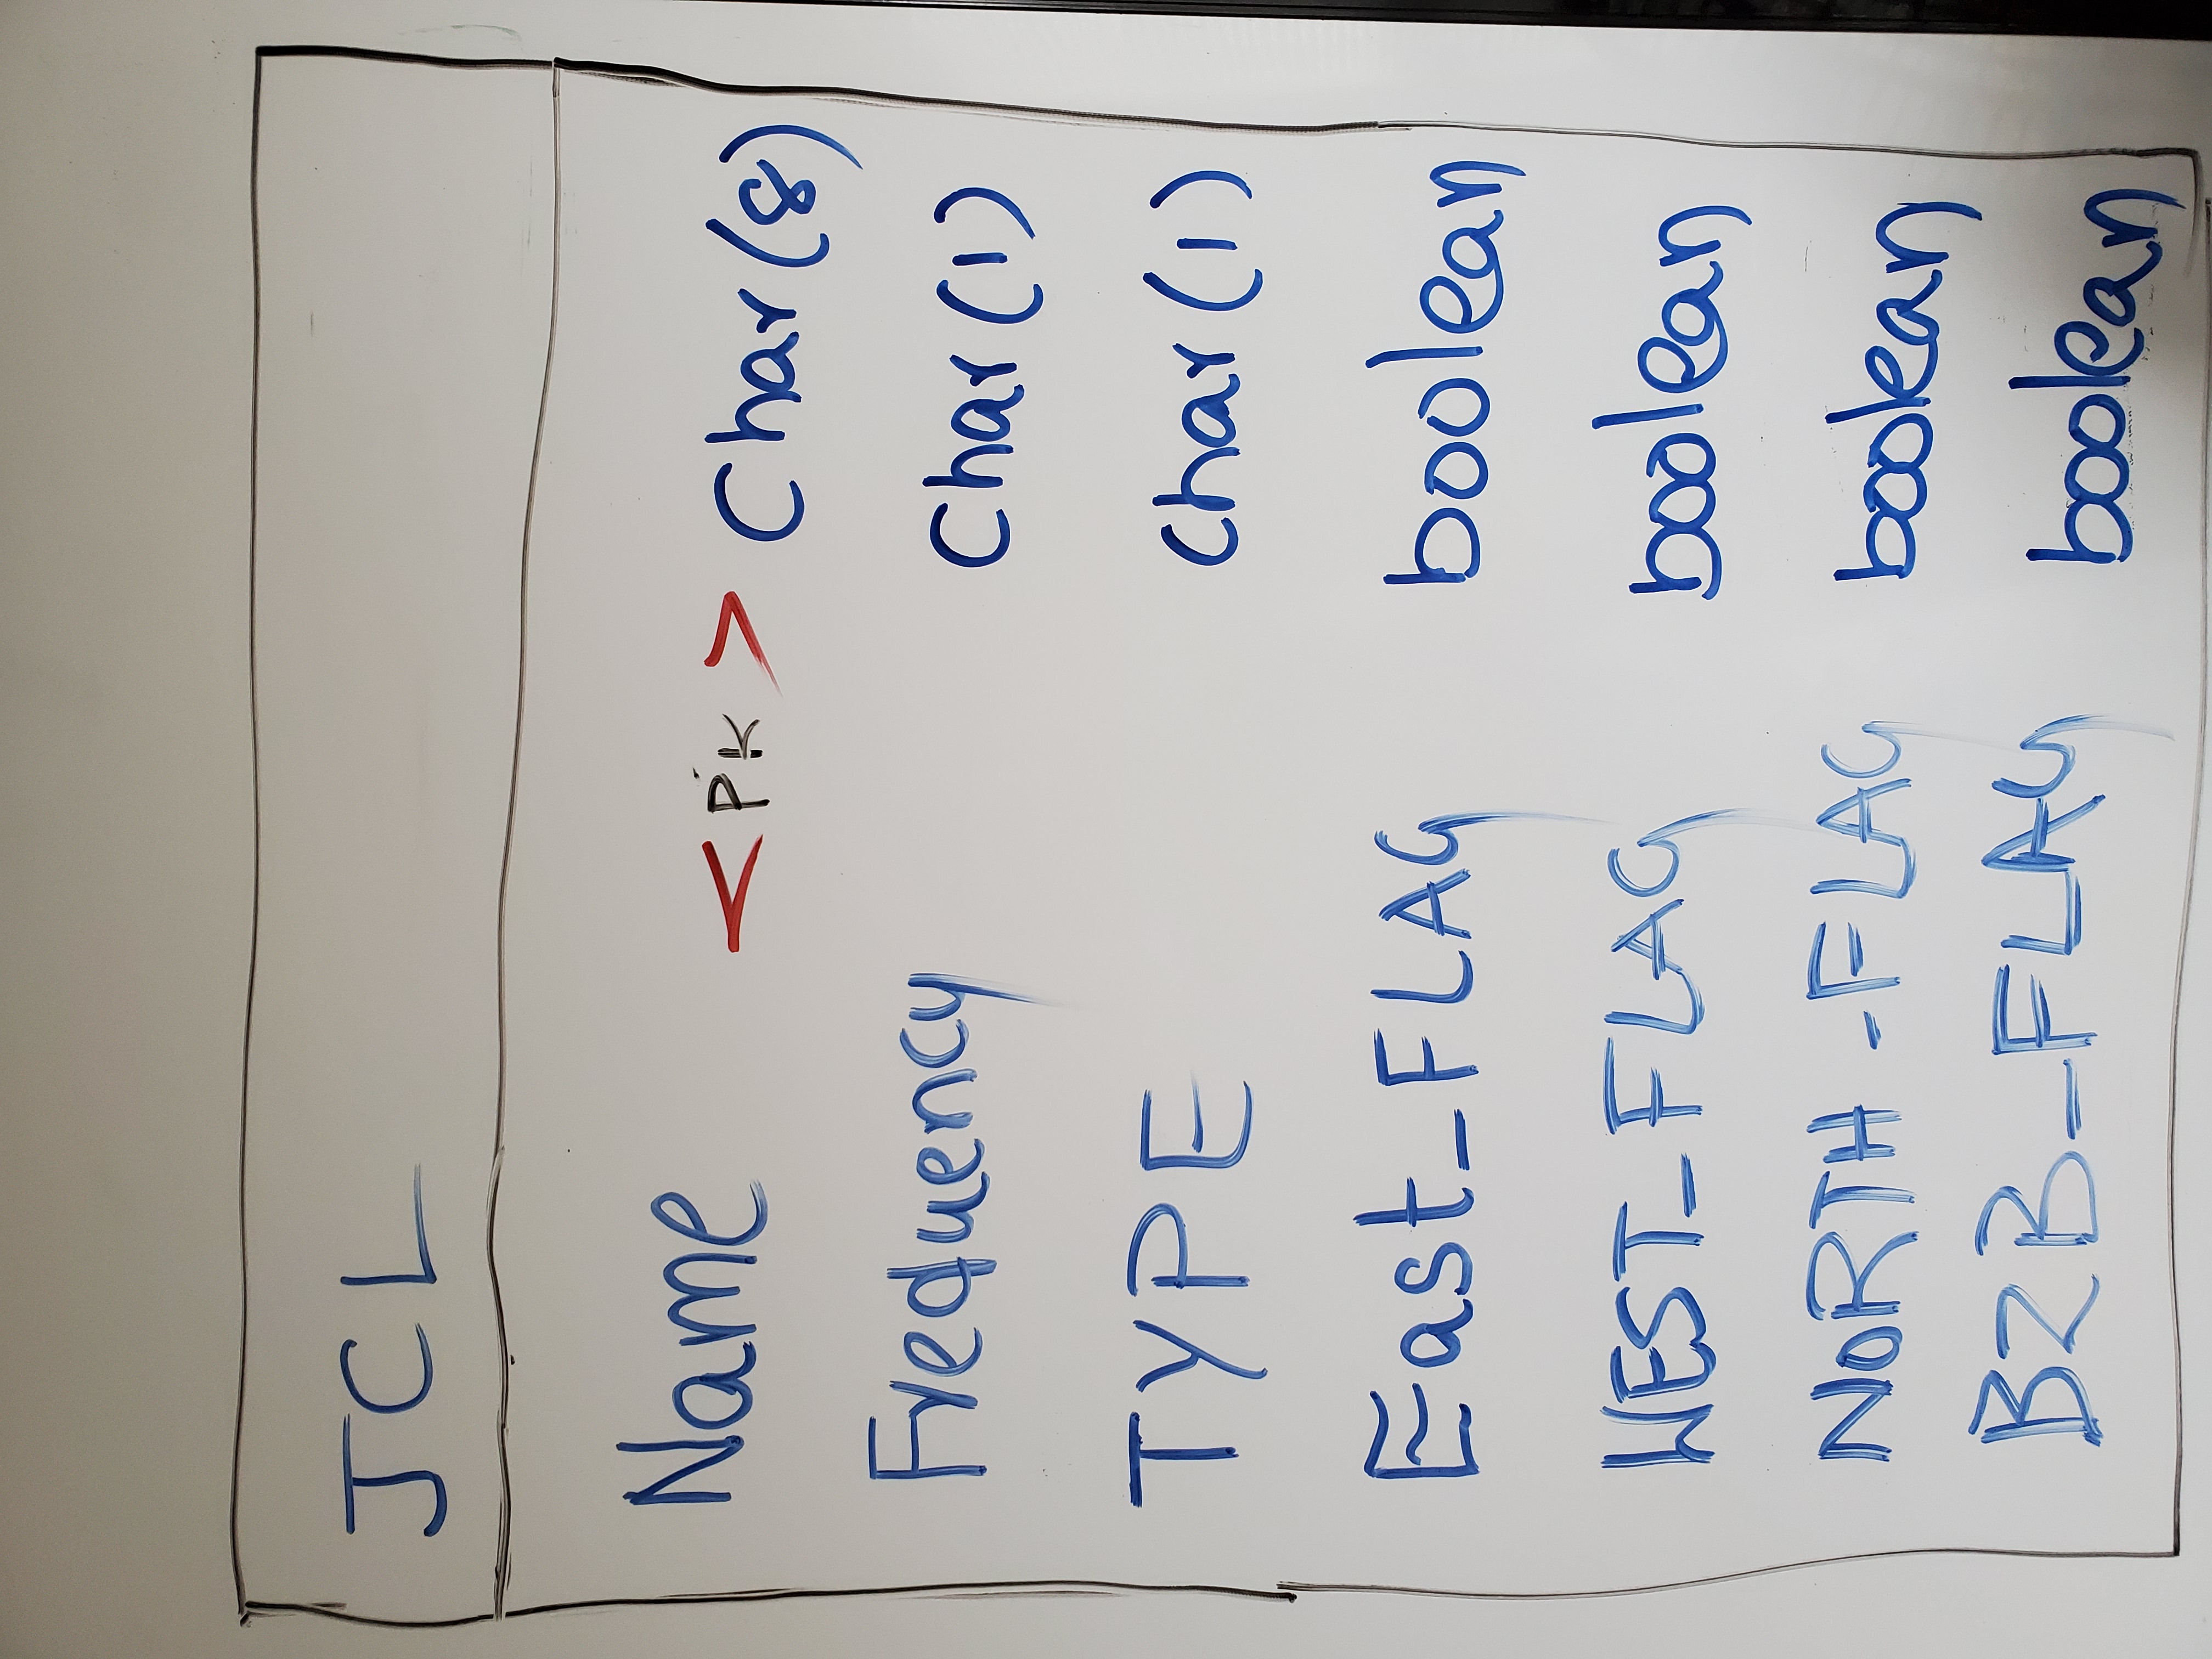 JCL
Name <PK> Char(8)
Frequency Char(1)
TYPE Char(1)
East_FLAG boolean
WEST_FLAG boolean
NORTH_FLAG boolean
B2B_FLAG boolean